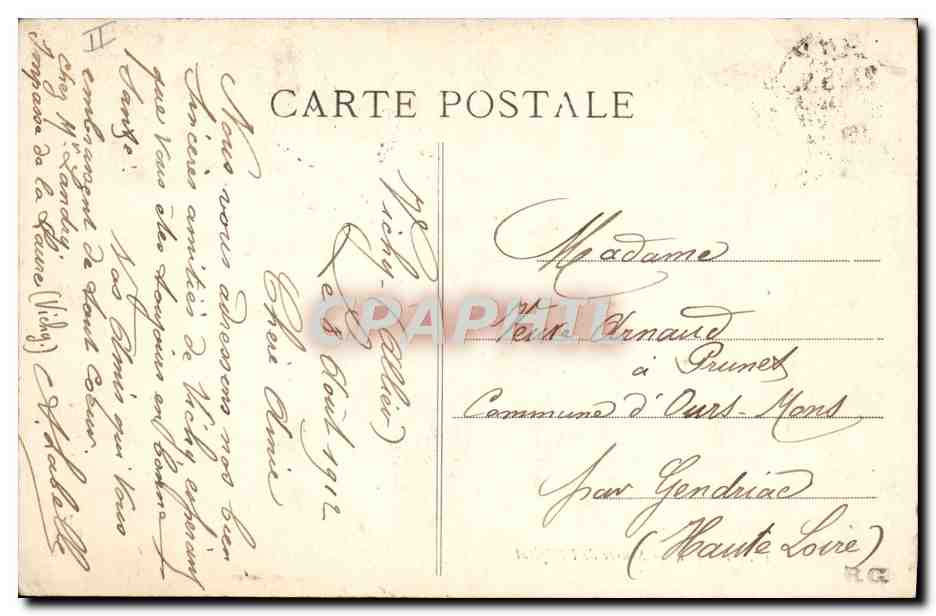 CARTE POSTALE
Vichy (Allier)
Le 8 Août 1912
Chère Amie
Nous vous adressons nos bien
Sincères amitiés de Vichy espérant
que vous êtes toujours en bonne
Santé.
Vos Amis qui vous
embrassent de tout Coeur.
Chez Mr Landry
Impasse de la Laure (Vichy)
II
Madame
Veuve Arnaud
à Prunet
Commune d'Ours-Mons
par Gendriac
(Haute Loire)
CPARAMA
R.G.